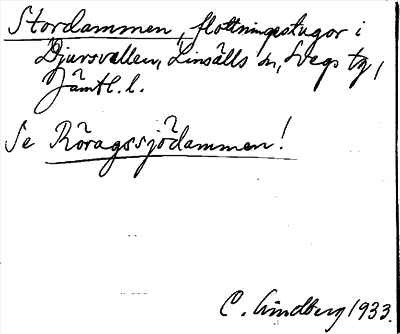 Stordammen, flottningsstugor i
Djursvallen, Linsälls sn, Svegs tg,
Jämtl. l.
Se Röragssjödammen!
C. Lindberg 1933.